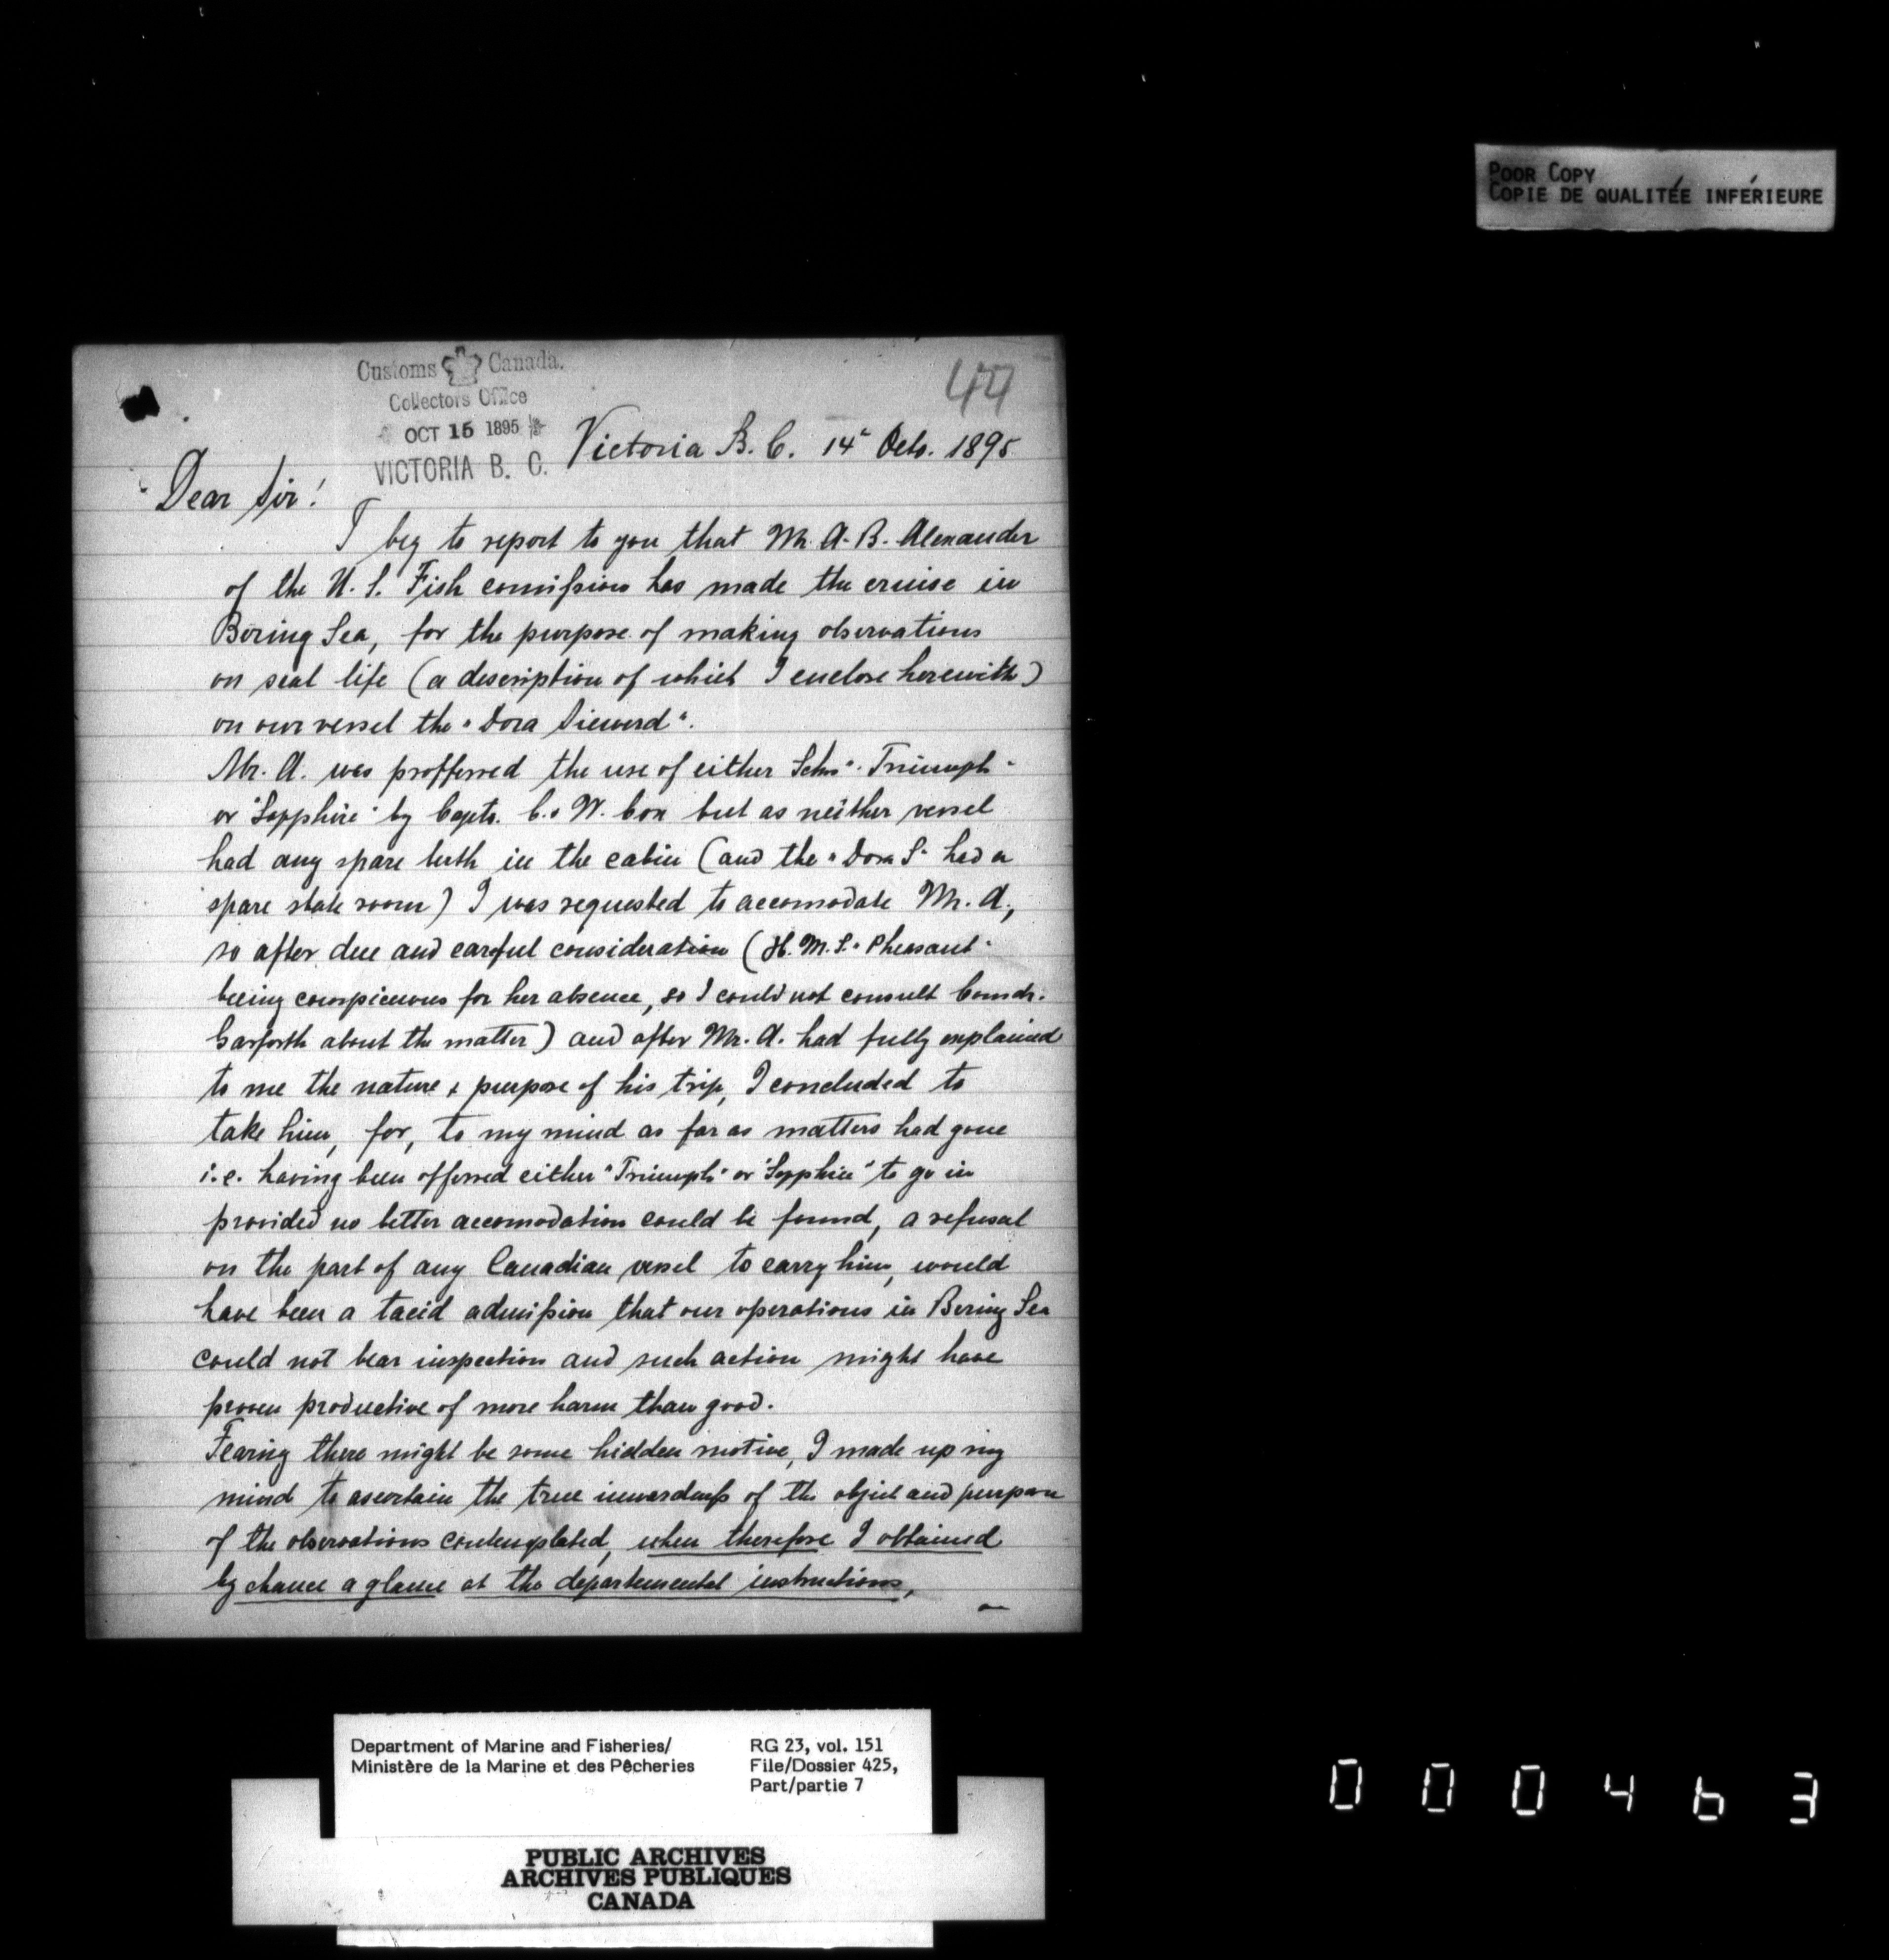 POOR COPY
COPIE DE QUALITÉE INFÉRIEURE
Customs Canada.
Collectors Office
OCT 15 1895
VICTORIA B. C.
44
Victoria B. C. 14th Octo. 1895
Dear Sir!
I beg to report to you that Mr. A. B. Alexander
of the U. S. Fish comission has made the cruise in
Bering Sea, for the purpose of making observations
on seal life (a description of which I enclose herewith)
on our vessel the "Dora Sieward".
Mr. A. was profferred the use of either Schs". Triumph"
or "Sapphire" by Capts. C. & W. Cox but as neither vessel
had any spare berth in the cabin (and the "Dora S" had a
spare state room) I was requested to accomodate Mr. A.,
so after due and careful consideration (H. M. S. "Pheasant"
being conspicuous for her absence, so I could not consult Comdr.
Garforth about the matter) and after Mr. A. had fully explained
to me the nature & purpose of his trip, I concluded to
take him, for, to my mind as far as matters had gone
i.e. having been offerred either "Triumph" or "Sapphire" to go in
provided no better accomodation could be found, a refusal
on the part of any Canadian vessel to carry him, would
have been a tacid admission that our operations in Bering Sea
could not bear inspection and such action might have
proven productive of more harm than good.
Fearing there might be some hidden motive, I made up my
mind to ascertain the true inwardness of the object and purpose
of the observations contemplated, when therefore I obtained
by chance a glance at the departemental instructions,
Department of Marine and Fisheries/
Ministère de la Marine et des Pêcheries
RG 23, vol. 151
File/Dossier 425,
Part/partie 7
PUBLIC ARCHIVES
ARCHIVES PUBLIQUES
CANADA
000463